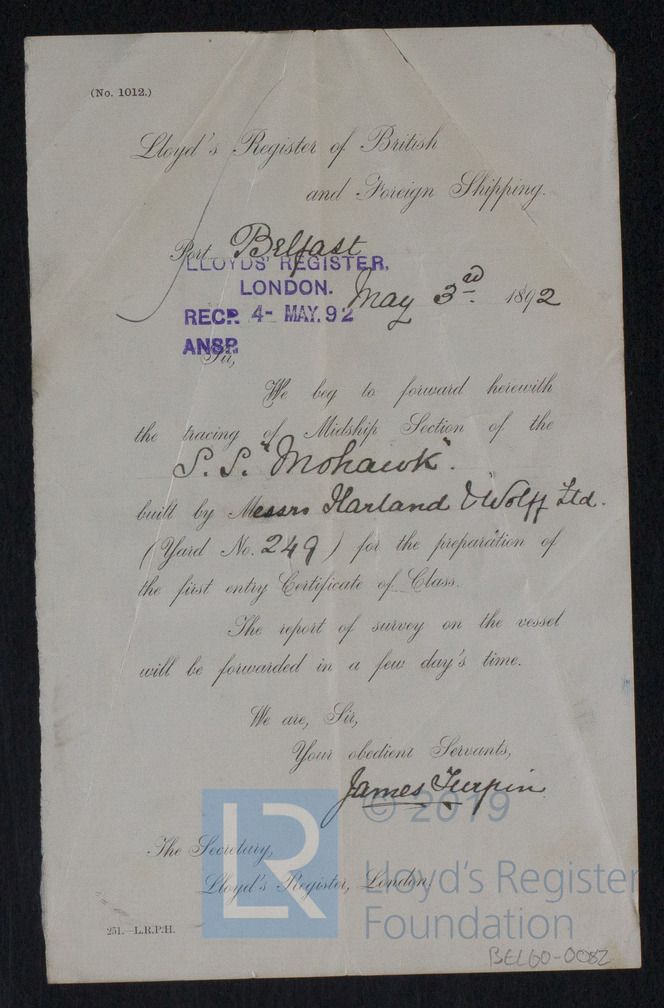 (No. 1012.)
Lloyd's Register of British
and Foreign Shipping.
Port Belfast
LLOYDS' REGISTER,
LONDON.
May 3rd 1892
RECD. 4- MAY. 92
ANSD.
Sir,
We beg to forward herewith
the tracing of Midship Section of the
S.S. "Mohawk".
built by Messrs Harland & Wolff Ltd.
(Yard No. 249) for the preparation of
the first entry Certificate of Class.
The report of survey on the vessel
will be forwarded in a few day's time.
We are, Sir,
Your obedient Servants,
James Turpin
© 2019
The Secretary,
Lloyd's Register, London.
LR
Lloyd's Register
Foundation
251.—L.R.P.H.
BEL60-0082